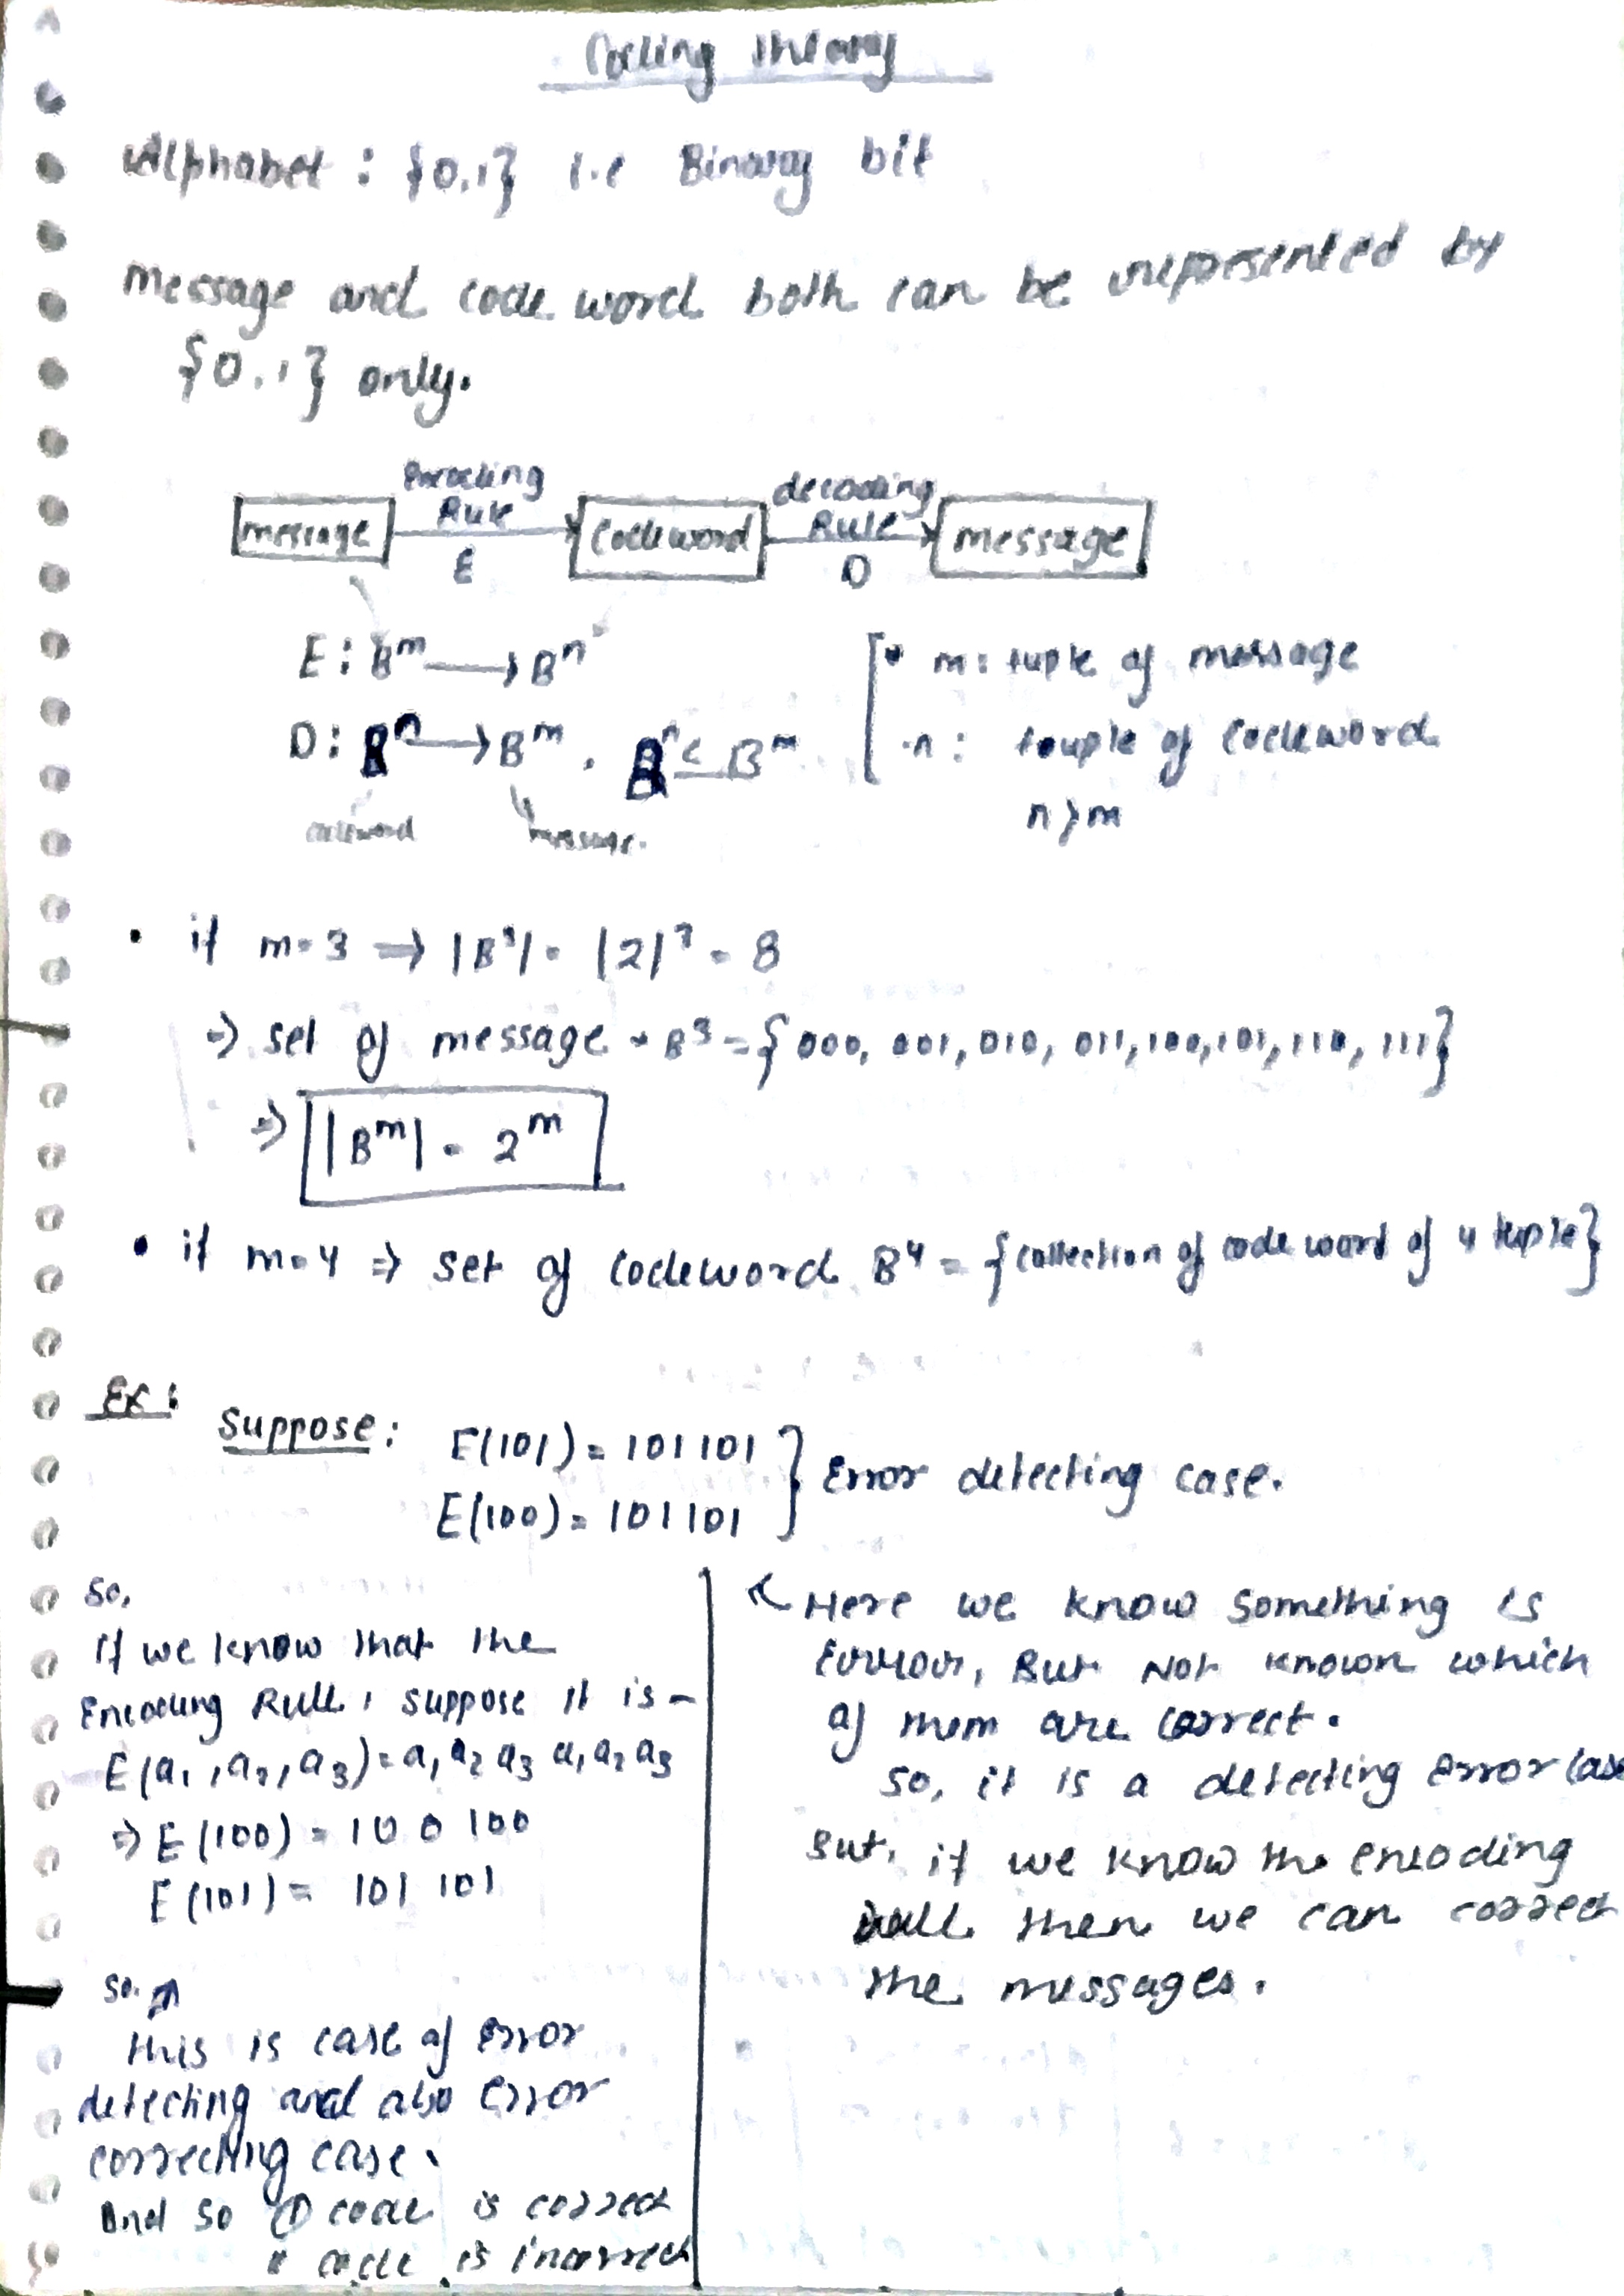 Coding Theory
Alphabet : {0,1} i.e Binary bit
message and code word both can be represented by
{0,1} only.
Encoding decoding
Rule Rule
message Codeword message
E D
E : B^m → B^n
• m : tuple of message
D : B^n → B^m , B^n ≤ B^m
• n : touple of Codeword
codeword message.
n > m
• if m = 3 ⇒ |B^3| = |2|^3 = 8
⇒ set of message = B^3 = { 000, 001, 010, 011, 100, 101, 110, 111}
⇒ |B^m| = 2^m
• if m = 4 ⇒ set of Codeword B^4 = {collection of code word of 4 tuple}
Ex :
Suppose : E(101) = 101101
} Error detecting case.
E(100) = 101101
so,
If we know that the
Encoding Rull, suppose it is -
E(a1, a2, a3) = a1 a2 a3 a1 a2 a3
⇒ E(100) = 100 100
E(101) = 101 101
so,
this is case of error
detecting and also error
correcting case.
And so ① code is correct
code is incorrect
Here we know something is
, But Not known which
of them are correct.
so, it is a detecting error case
But, if we know the encoding
rull then we can correct
the messages.